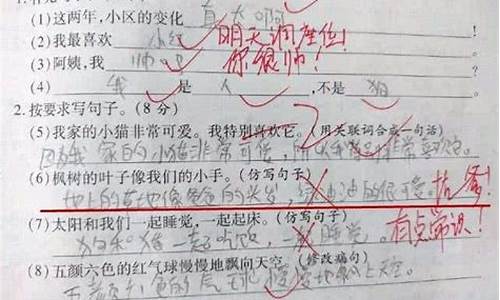 (1)这两年,小区的变化 真大啊
(2)我最喜欢 小红 明天调座位!
(3)阿姨,我 帅吧 你很帅!
(4) 我 是 人 ,不是 狗
2.按要求写句子。(8分)
(5)我家的小猫非常可爱。我特别喜欢它。(用关联词合成一句话)
因为我家的小猫非常可爱,所以我非常喜欢它。
(6)枫树的叶子像我们的小手。(仿写句子)
地上的草地像爸爸的头发,绿油油的很可爱。 抗议!
(7)太阳和我们一起睡觉,一起起床。(仿写句子)
狗和猪一起吃饭,一起睡觉。 有点常识!
(8)五颜六色的红气球慢慢地飘向天空。(修改病句)
五颜六色的气球慢慢地飘上天空。